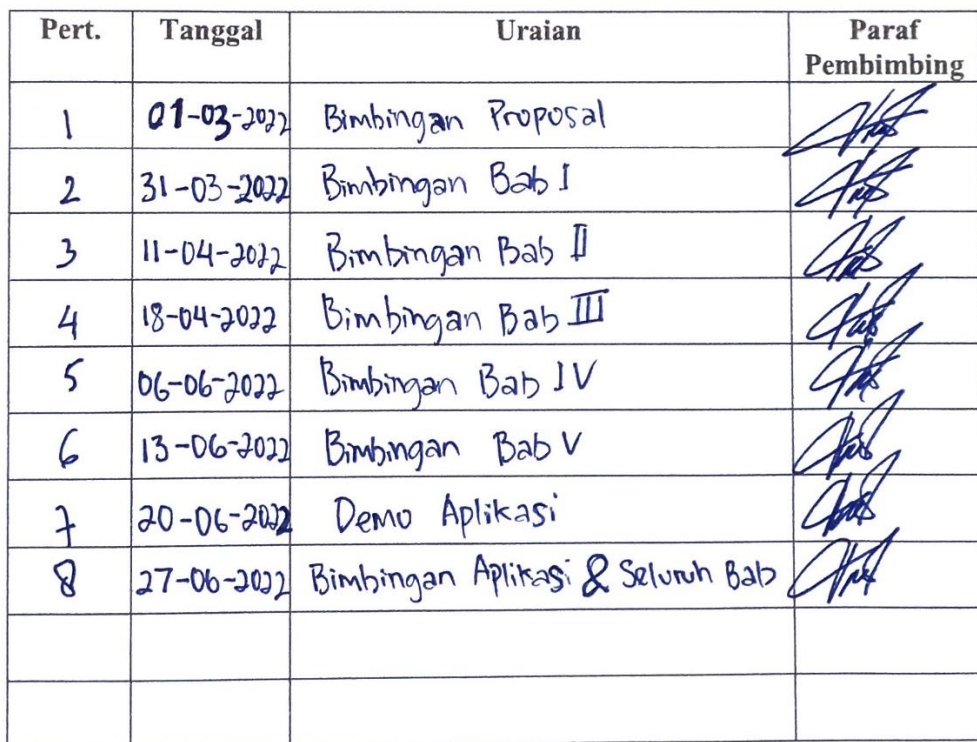 Pert. Tanggal Uraian Paraf
Pembimbing
1 01-03-2022 Bimbingan Proposal
2 31-03-2022 Bimbingan Bab I
3 11-04-2022 Bimbingan Bab II
4 18-04-2022 Bimbingan Bab III
5 06-06-2022 Bimbingan Bab IV
6 13-06-2022 Bimbingan Bab V
7 20-06-2022 Demo Aplikasi
8 27-06-2022 Bimbingan Aplikasi & Seluruh Bab